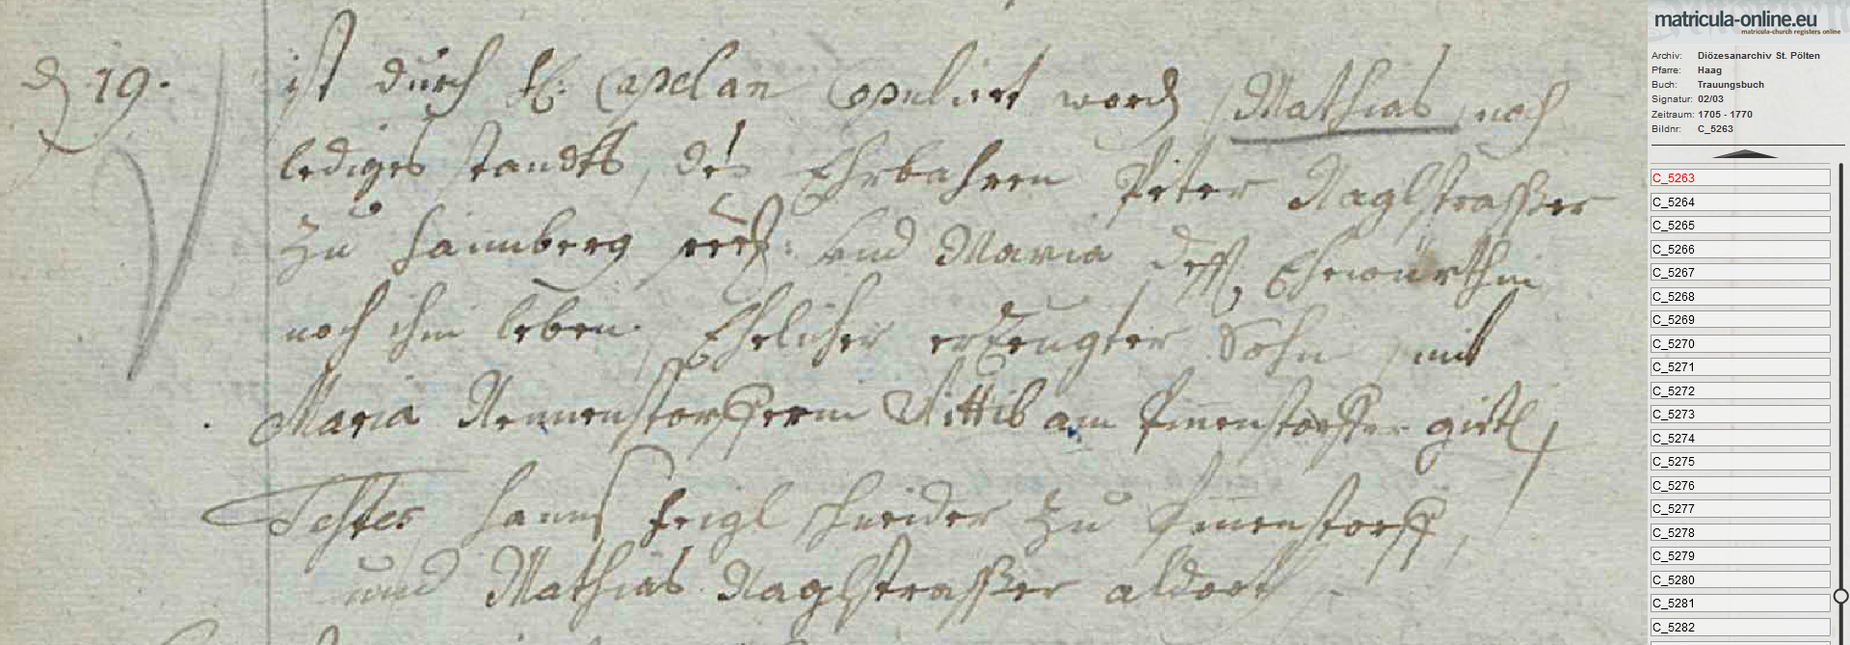 d 19.
ist durch H: Capelan Copuliert word Mathias noch
lediges standts, des Ehrbahren Peter Naglstrasser
zu hannberg seel: und Maria dess Ehewürthin
noch ihm leben Ehelicher erzeugter Sohn, mit
Maria Wittib am
Testes hanns feigl schneider zu
und Mathias Naglstrasser aldort
matricula-online.eu
matricula-church registers online
Archiv: Diözesanarchiv St. Pölten
Pfarre: Haag
Buch: Trauungsbuch
Signatur: 02/03
Zeitraum: 1705 - 1770
Bildnr: C_5263
C_5263
C_5264
C_5265
C_5266
C_5267
C_5268
C_5269
C_5270
C_5271
C_5272
C_5273
C_5274
C_5275
C_5276
C_5277
C_5278
C_5279
C_5280
C_5281
C_5282